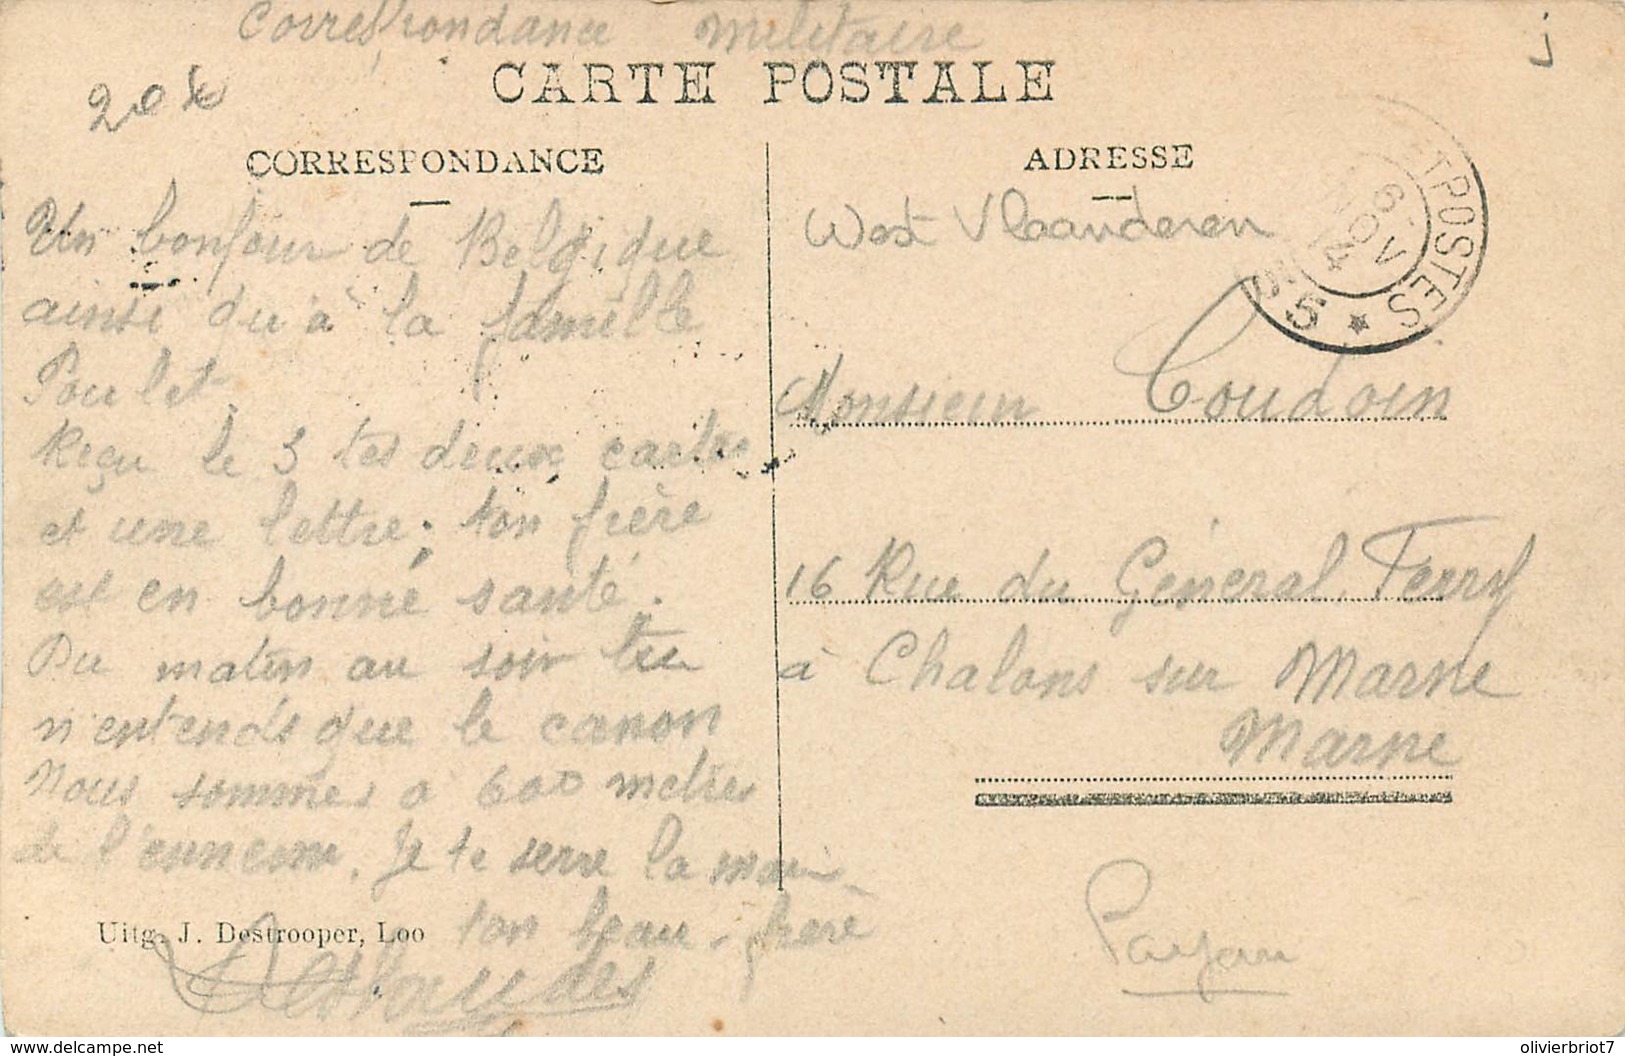 Correspondance Militaire
CARTE POSTALE
j
CORRESPONDANCE
Un bonjour de Belgique
ainsi qu'à la famille
Poulet.
Reçu le 3 tes deux cartes
et une lettre; ton frère
est en bonne santé.
Du matin au soir tu
n'entends que le canon
Nous sommes a 600 metres
de l'ennemi. Je te serre la main
ton beau-frere
Uitg. J. Destrooper, Loo
ADRESSE
West Vlaanderen
ET POSTES
6
NOV
14
* 5
Monsieur Coudoin
16 Rue du Général Ferry
à Chalons sur Marne
Marne
Paysan
www.delcampe.net
olivierbriot7